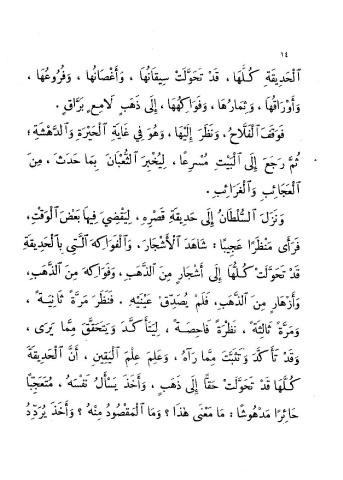 ١٤
ٱلْحَدِيقَةِ كُلَّهَا ، قَدْ تَحَوَّلَتْ سِيقَانُهَا ، وَأَغْصَانُهَا ، وَفُرُوعُهَا ،
وَأَوْرَاقُهَا ، وَثِمَارُهَا ، وَفَوَاكِهُهَا ، إِلَى ذَهَبٍ لَامِعٍ بَرَّاقٍ .
فَوَقَفَ ٱلْفَلَّاحُ ، وَنَظَرَ إِلَيْهَا ، وَهُوَ فِي غَايَةِ ٱلْحَيْرَةِ وَٱلدَّهْشَةِ ؛
ثُمَّ رَجَعَ إِلَى ٱلْبَيْتِ مُسْرِعًا ، لِيُخْبِرَ ٱلثُّعْبَانَ بِمَا حَدَثَ ، مِنَ
ٱلْعَجَائِبِ وَٱلْغَرَائِبِ .
وَنَزَلَ ٱلسُّلْطَانُ إِلَى حَدِيقَةِ قَصْرِهِ ، لِيَقْضِيَ فِيهَا بَعْضَ ٱلْوَقْتِ،
فَرَأَى مَنْظَرًا عَجِيبًا : شَاهَدَ ٱلْأَشْجَارَ، وَٱلْفَوَاكِهَ ٱلَّتِي بِٱلْحَدِيقَةِ
قَدْ تَحَوَّلَتْ كُلُّهَا إِلَى أَشْجَارٍ مِنَ ٱلذَّهَبِ، وَفَوَاكِهَ مِنَ ٱلذَّهَبِ،
وَأَزْهَارٍ مِنَ ٱلذَّهَبِ، فَلَمْ يُصَدِّقْ عَيْنَيْهِ . فَنَظَرَ مَرَّةً ثَانِيَةً ،
وَمَرَّةً ثَالِثَةً ، نَظْرَةً فَاحِصَةً ، لِيَتَأَكَّدَ وَيَتَحَقَّقَ مِمَّا يَرَى ،
وَقَدْ تَأَكَّدَ وَتَثَبَّتَ مِمَّا رَآهُ ، وَعَلِمَ عِلْمَ ٱلْيَقِينِ ، أَنَّ ٱلْحَدِيقَةَ
كُلَّهَا قَدْ تَحَوَّلَتْ حَقًّا إِلَى ذَهَبٍ ، وَأَخَذَ يَسْأَلُ نَفْسَهُ ، مُتَعَجِّبًا
حَائِرًا مَدْهُوشًا : مَا مَعْنَى هٰذَا ؟ وَمَا ٱلْمَقْصُودُ مِنْهُ ؟ وَأَخَذَ يُرَدِّدُ